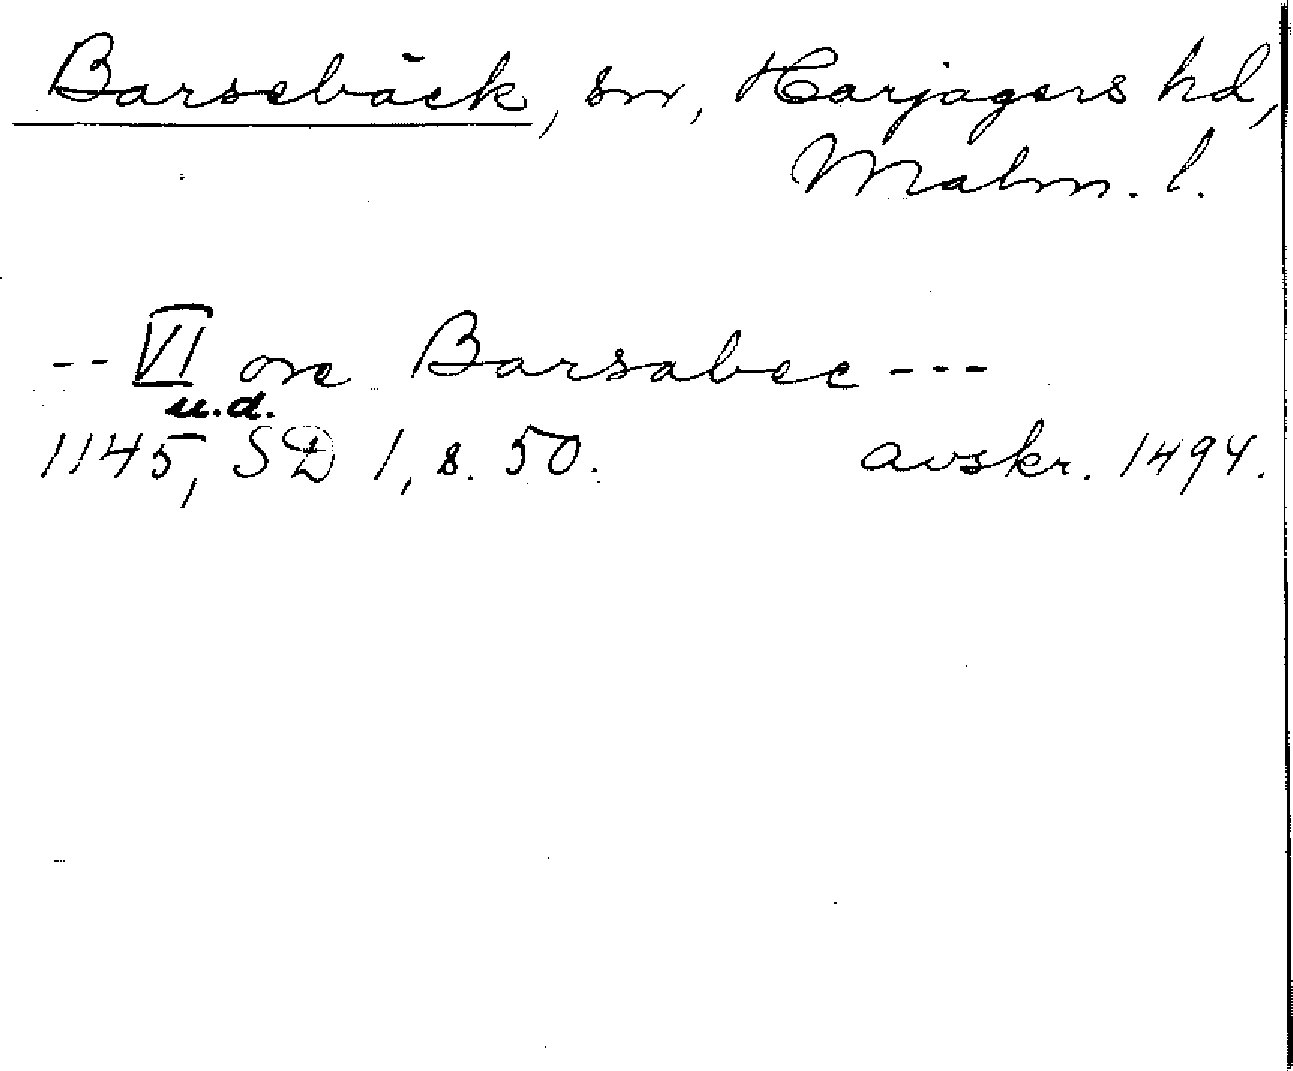 Barsebäck, sn, Harjagers hd,
Malm. l.
-- VI ore Barsabec ---
u.d.
1145, SD 1, s. 50. avskr. 1494.